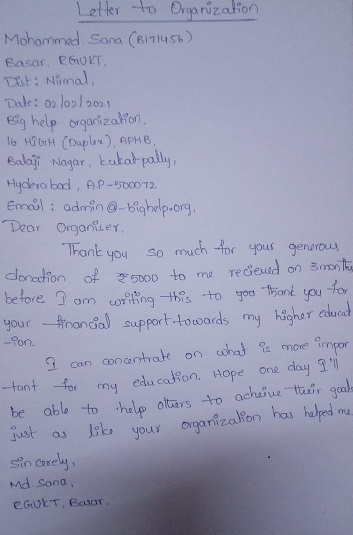 Letter to Organization
Mohammed Sana (B171456)
Basar, RGUKT,
Dist: Nirmal,
Date: 02/02/2021
Big help organization,
16 HIGH (Duplex), APHB,
Balaji Nagar, kukat-pally,
Hyderabad, AP-500072
Email: admin@-bighelp.org,
Dear Organiser,
Thank you so much for your generous
donation of ₹5000 to me recieved on 3months
before. I am writing this to you thank you for
your financial support towards my higher educat
-ion.
I can concentrate on what is more impor
-tant for my education. Hope one day I'll
be able to help others to acheive their goals
just as like your organization has helped me.
Sincerely,
Md. Sana,
RGUKT, Basar.